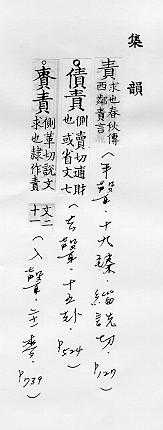 集韻
責 求也春秋傳西鄰責言（平聲·十九臻·緇詵切·P127）
債責 側賣切逋財也或省文七（去聲·十五卦·P524）
責 側革切說文求也隸作責文二十一（入聲·二十一麥·P739）